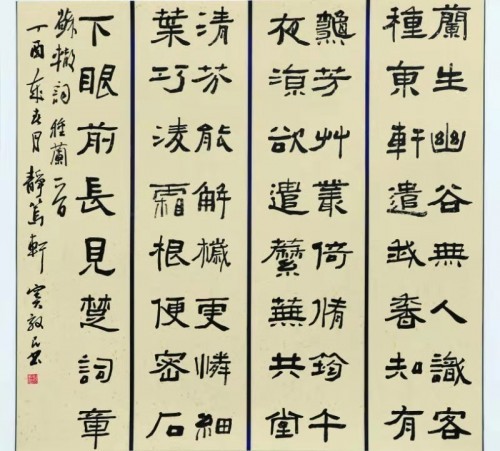 蘭生幽谷無人識客
種東軒遺我香知有
龝芳艸叢倚脩筠午
夜涼欲遣蘩蕪共堂
清芬能解穢更憐細
葉巧凌霜根便密石
下眼前長見楚詞章
蘇轍詞種蘭一首
丁酉春月靜篤軒